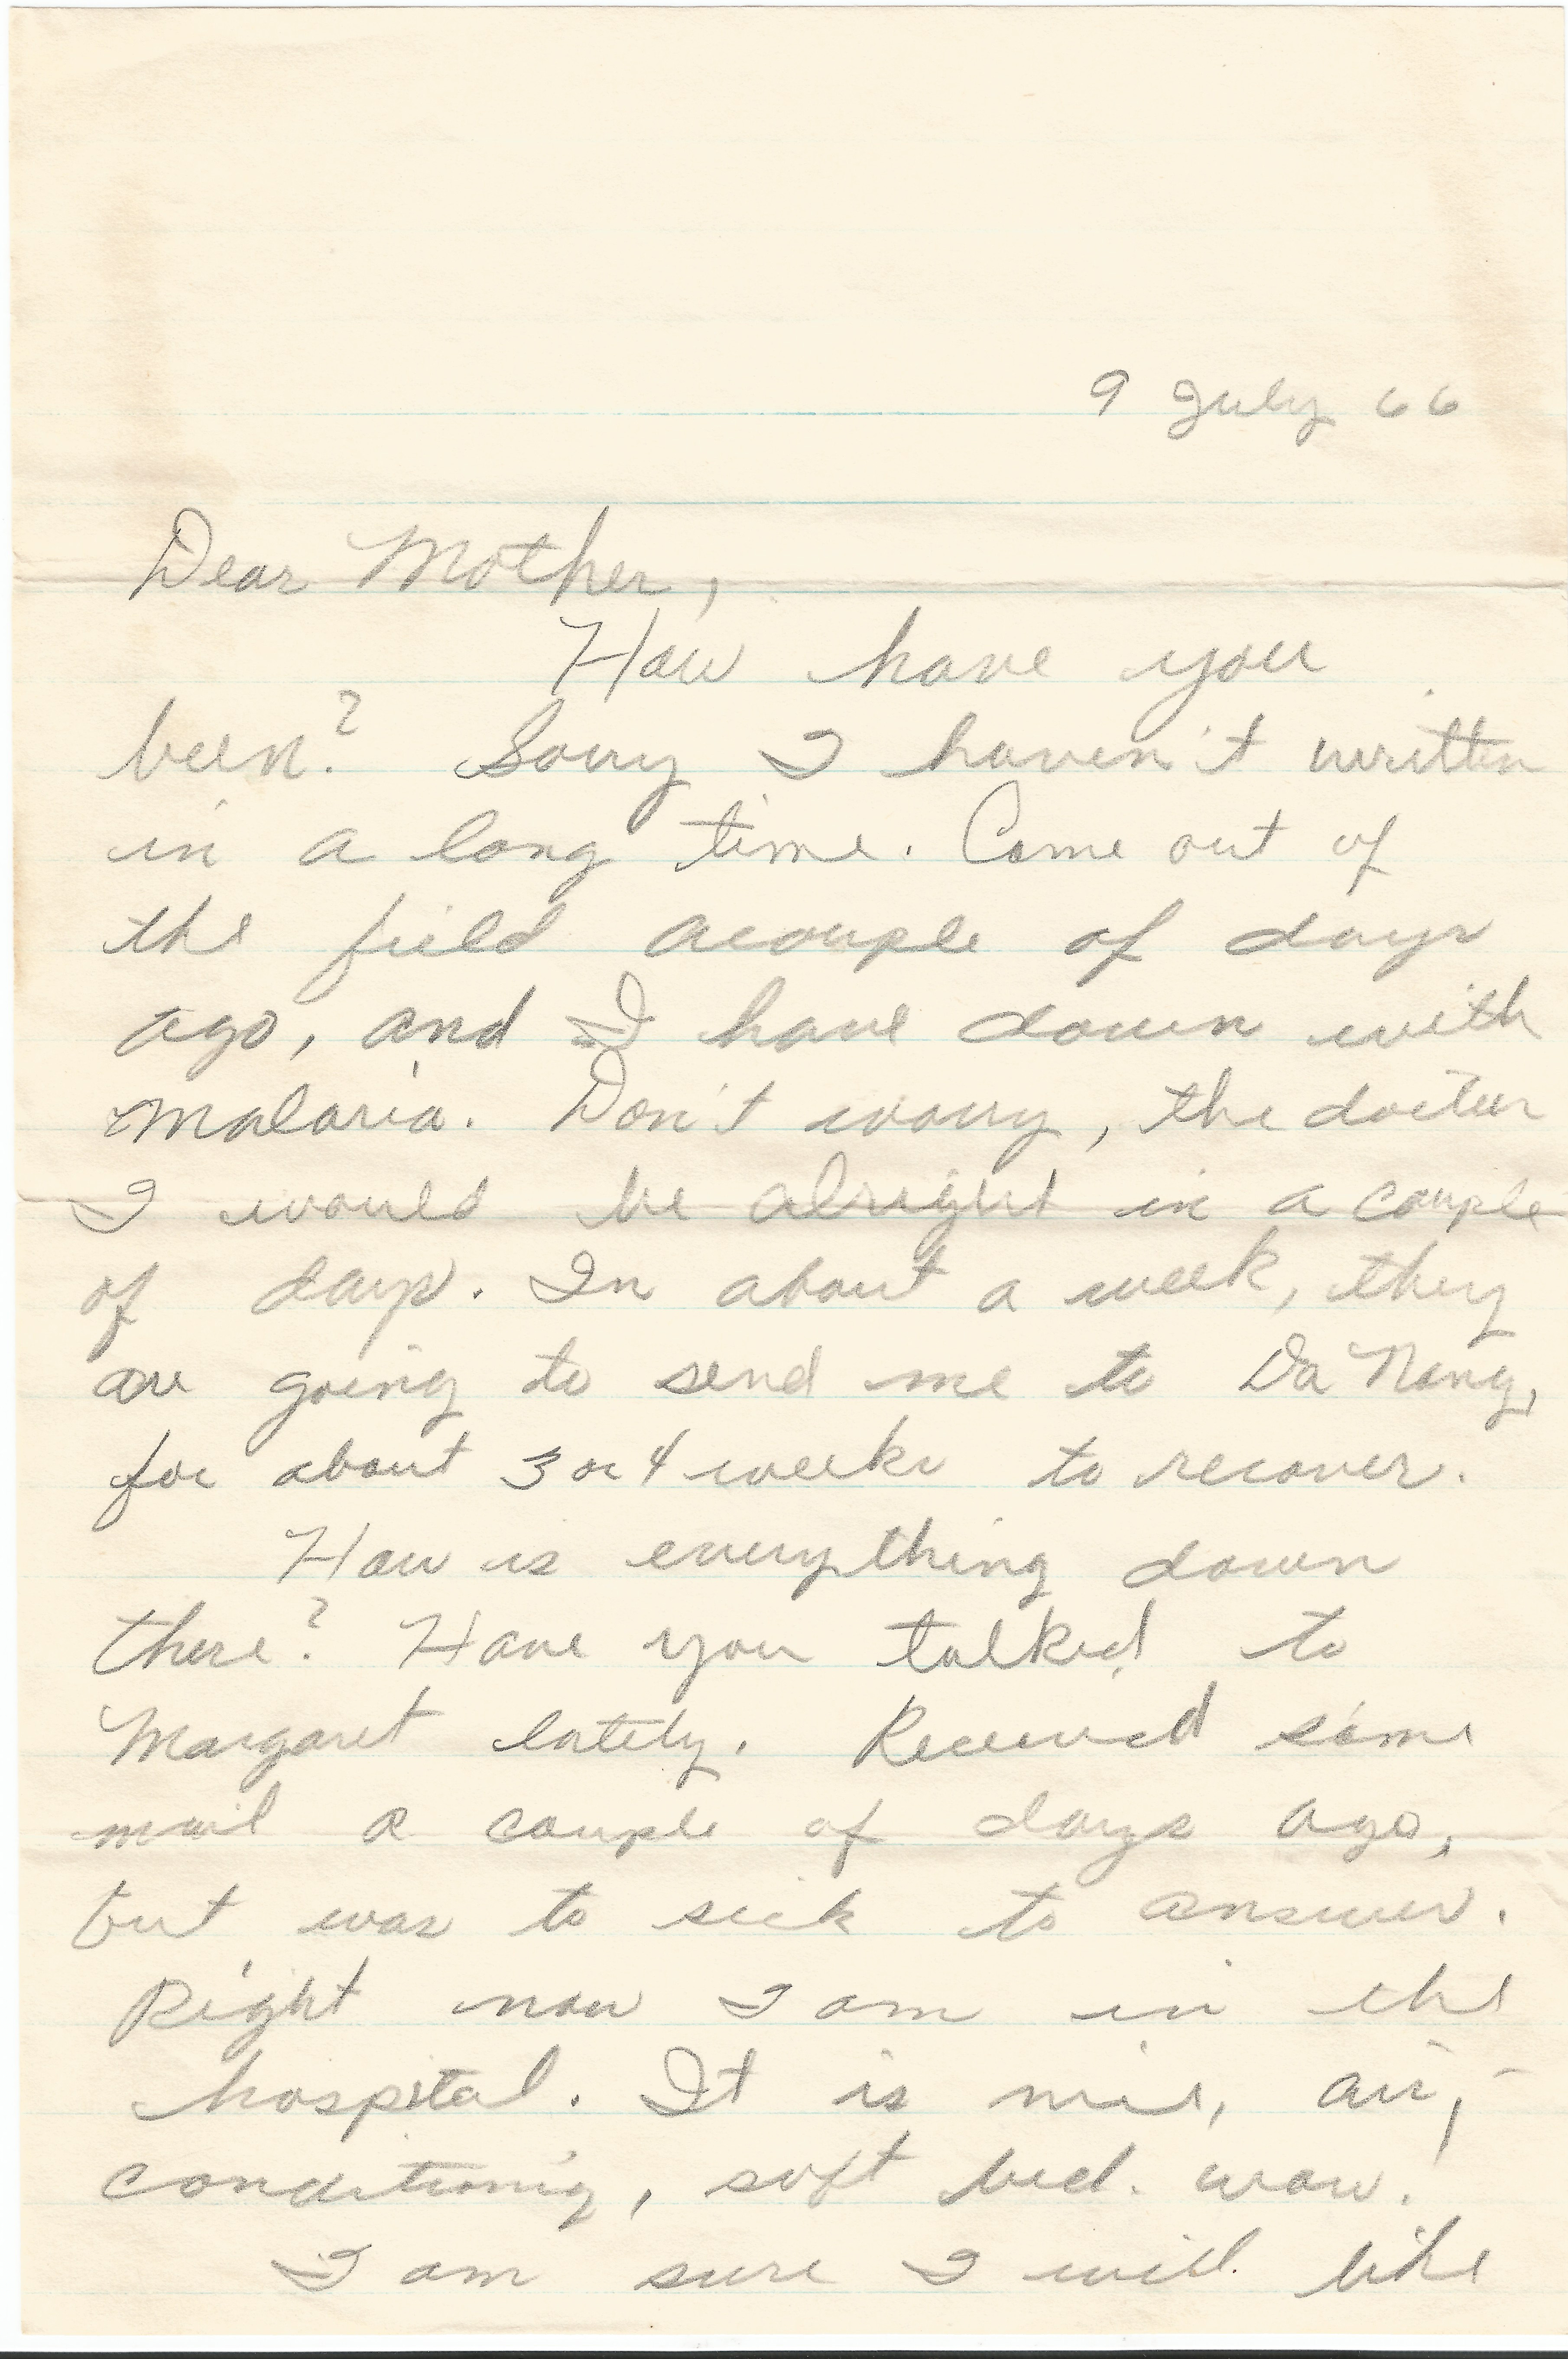 9 July 66
Dear Mother,
How have you
been? Sorry I haven't written
in a long time. Come out of
the field acouple of days
ago, and I have down with
malaria. Don't worry, the doctor
I would be alright in a couple
of days. In about a week, they
are going to send me to Da Nang,
for about 3 or 4 weeks to recover.
How is everything down
there? Have you talked to
Margaret lately. Received some
mail a couple of days ago,
but was to sick to answer.
Right now I am in the
hospital. It is nice, air,-
conditioning, soft bed. wow.
I am sure I will like